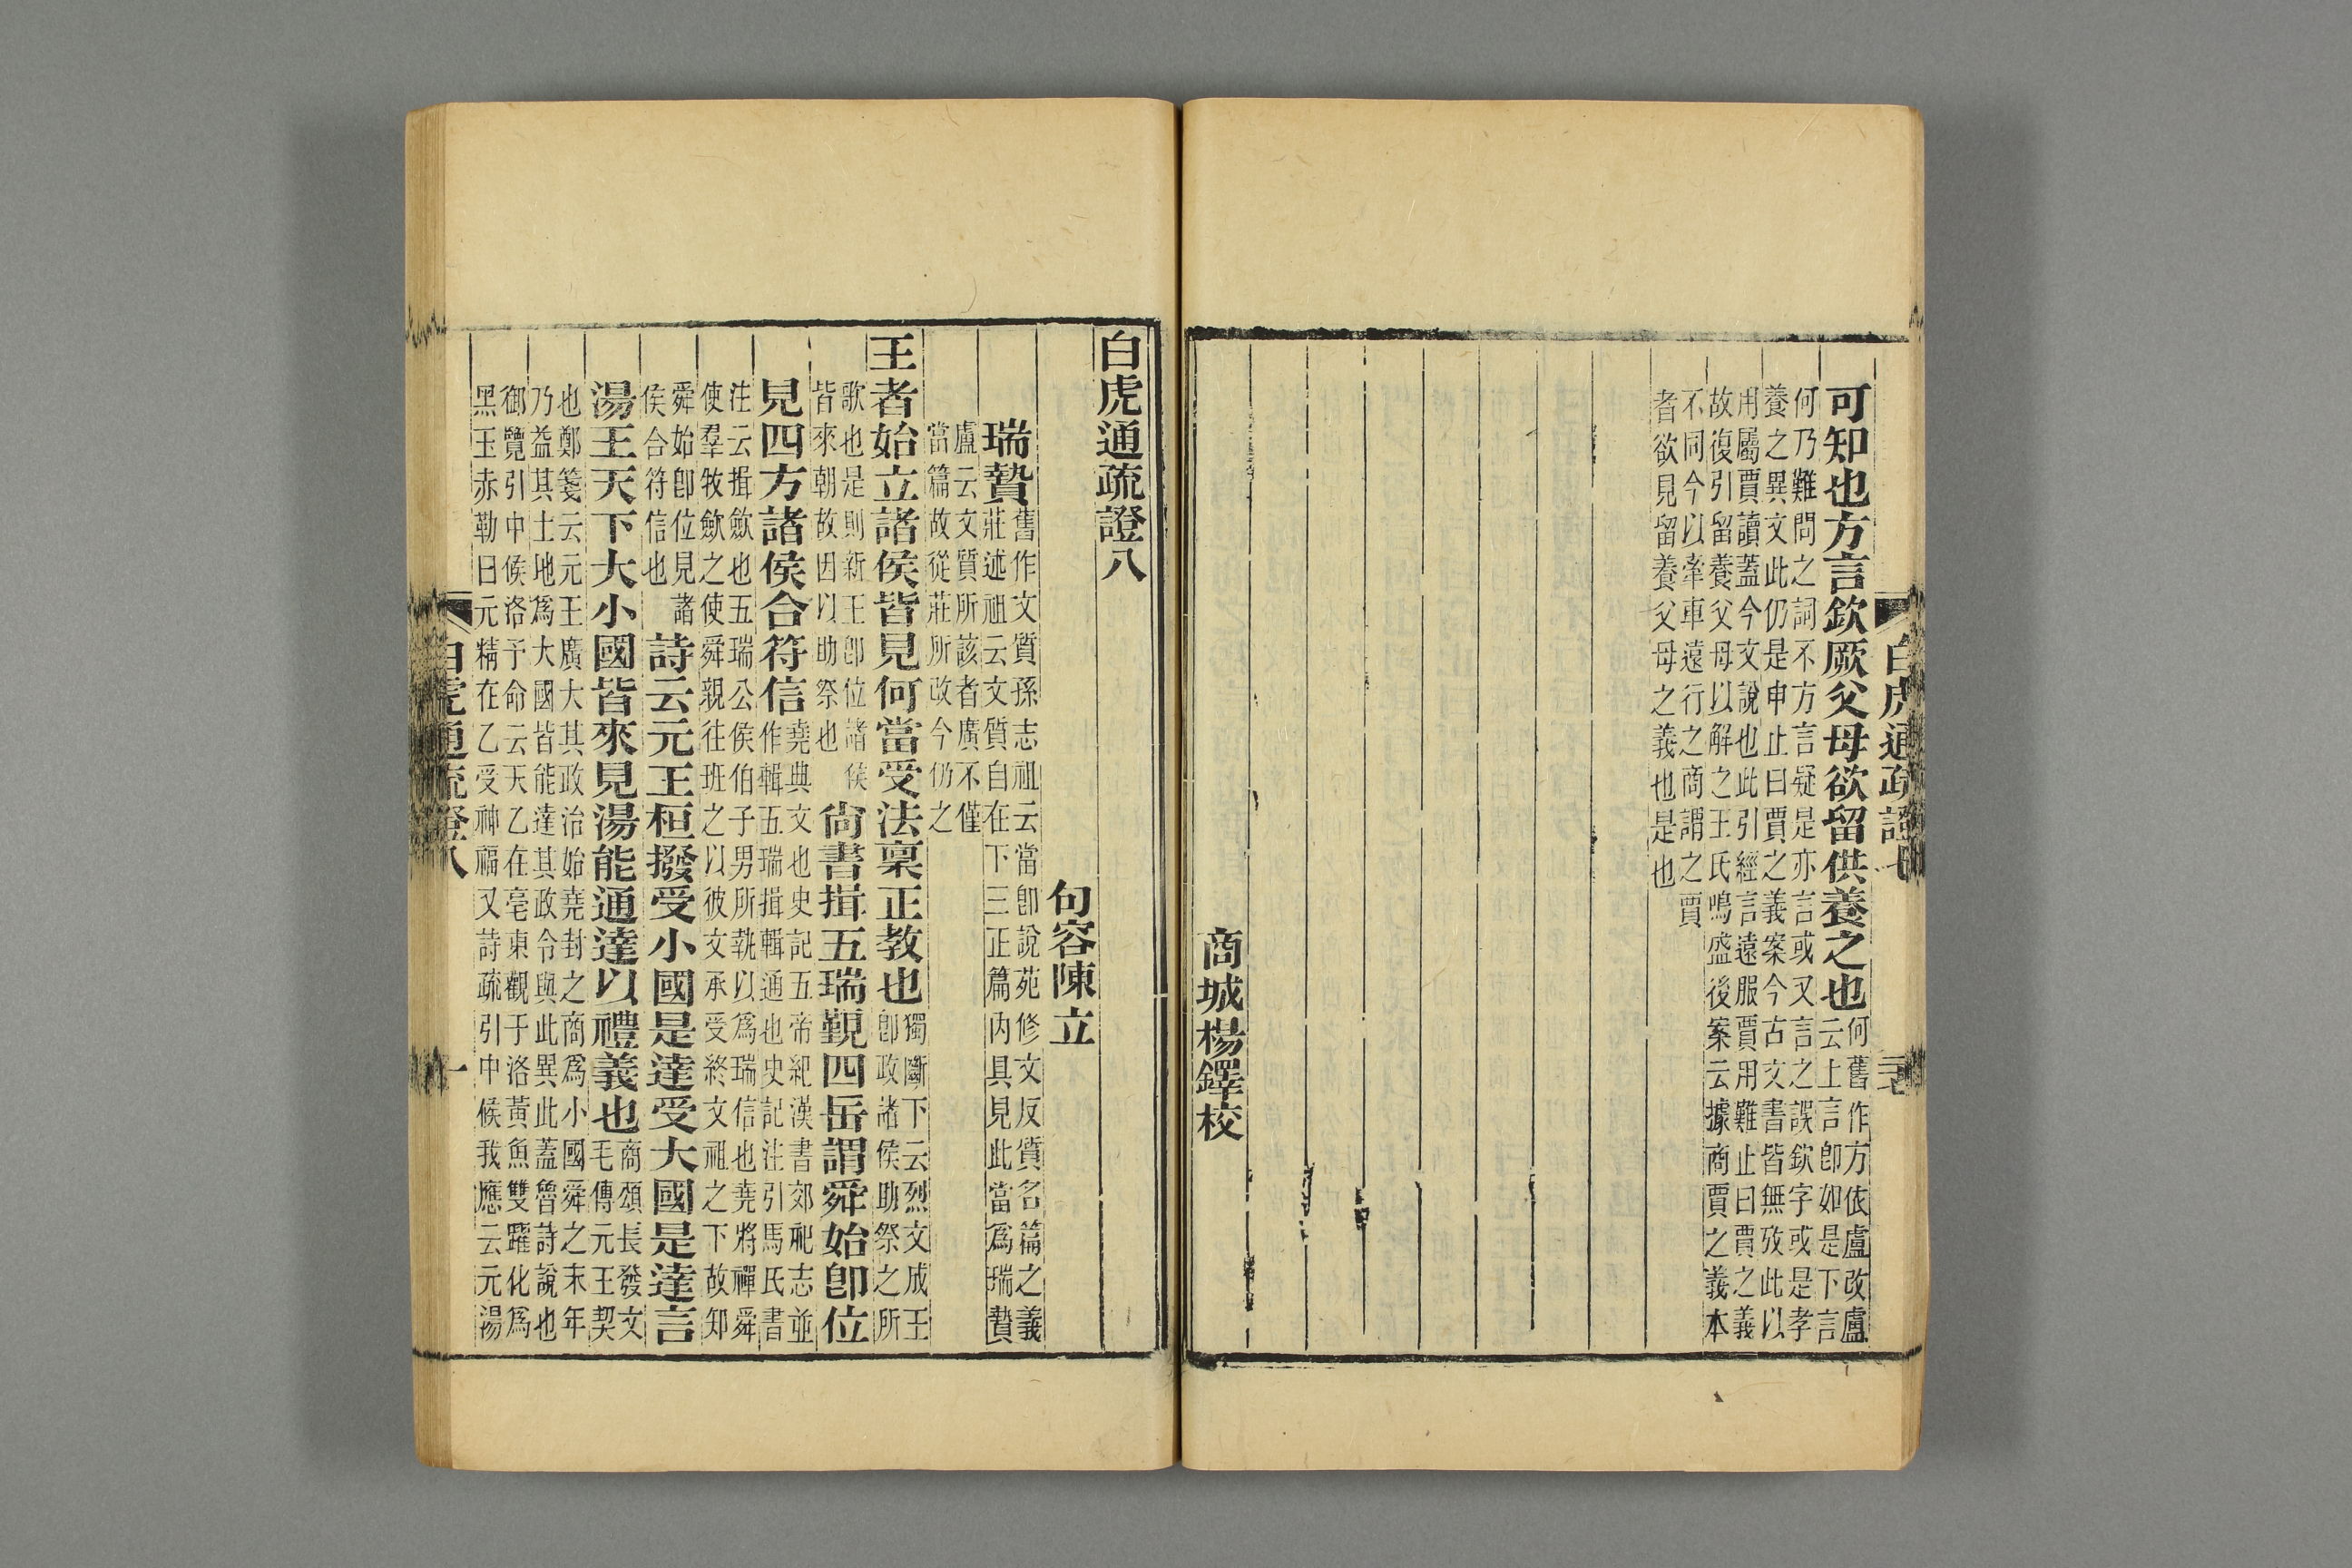 白虎通疏證七
可知也方言欽厥父母欲留供養之也何舊作方依盧改盧
云上言卽如是下言
何乃難問之詞不方言疑是亦言或又言之誤欽字或是孝
養之異文此仍是申止曰賈之義案今古文書皆無攷此以
用屬賈讀蓋今文說也此引經言遠服賈用難止曰賈之義
故復引留養父母以解之王氏鳴盛後案云據商賈之義本
不同今以牽車遠行之商謂之賈
者欲見留養父母之義也是也
商城楊鐸校
白虎通疏證八
句容陳立
瑞贄舊作文質孫志祖云當卽說苑修文反質名篇之義
莊述祖云文質自在下三正篇內具見此當爲瑞贄
盧云文質所該者廣不僅
當篇故從莊所改今仍之
王者始立諸侯皆見何當受法稟正教也獨斷下云烈文成王
卽政諸侯助祭之所
歌也是則新王卽位諸侯
皆來朝故因以助祭也
尙書揖五瑞覲四岳謂舜始卽位
見四方諸侯合符信堯典文也史記五帝紀漢書郊祀志並
作輯五瑞揖輯通也史記注引馬氏書
注云揖歛也五瑞公侯伯子男所執以爲瑞信也堯將禪舜
使羣牧歛之使舜親往班之以彼文承受終文祖之下故知
舜始卽位見諸
侯合符信也
詩云元王桓撥受小國是達受大國是達言
湯王天下大小國皆來見湯能通達以禮義也商頌長發文
毛傳元王契
也鄭箋云元王廣大其政治始堯封之商爲小國舜之末年
乃益其土地爲大國皆能達其政令與此異此蓋魯詩說也
御覽引中侯洛予命云天乙在亳東觀于洛黃魚雙躍化爲
黑玉赤勒曰元精在乙受神福又詩疏引中候我應云元湯
白虎通疏證八 一